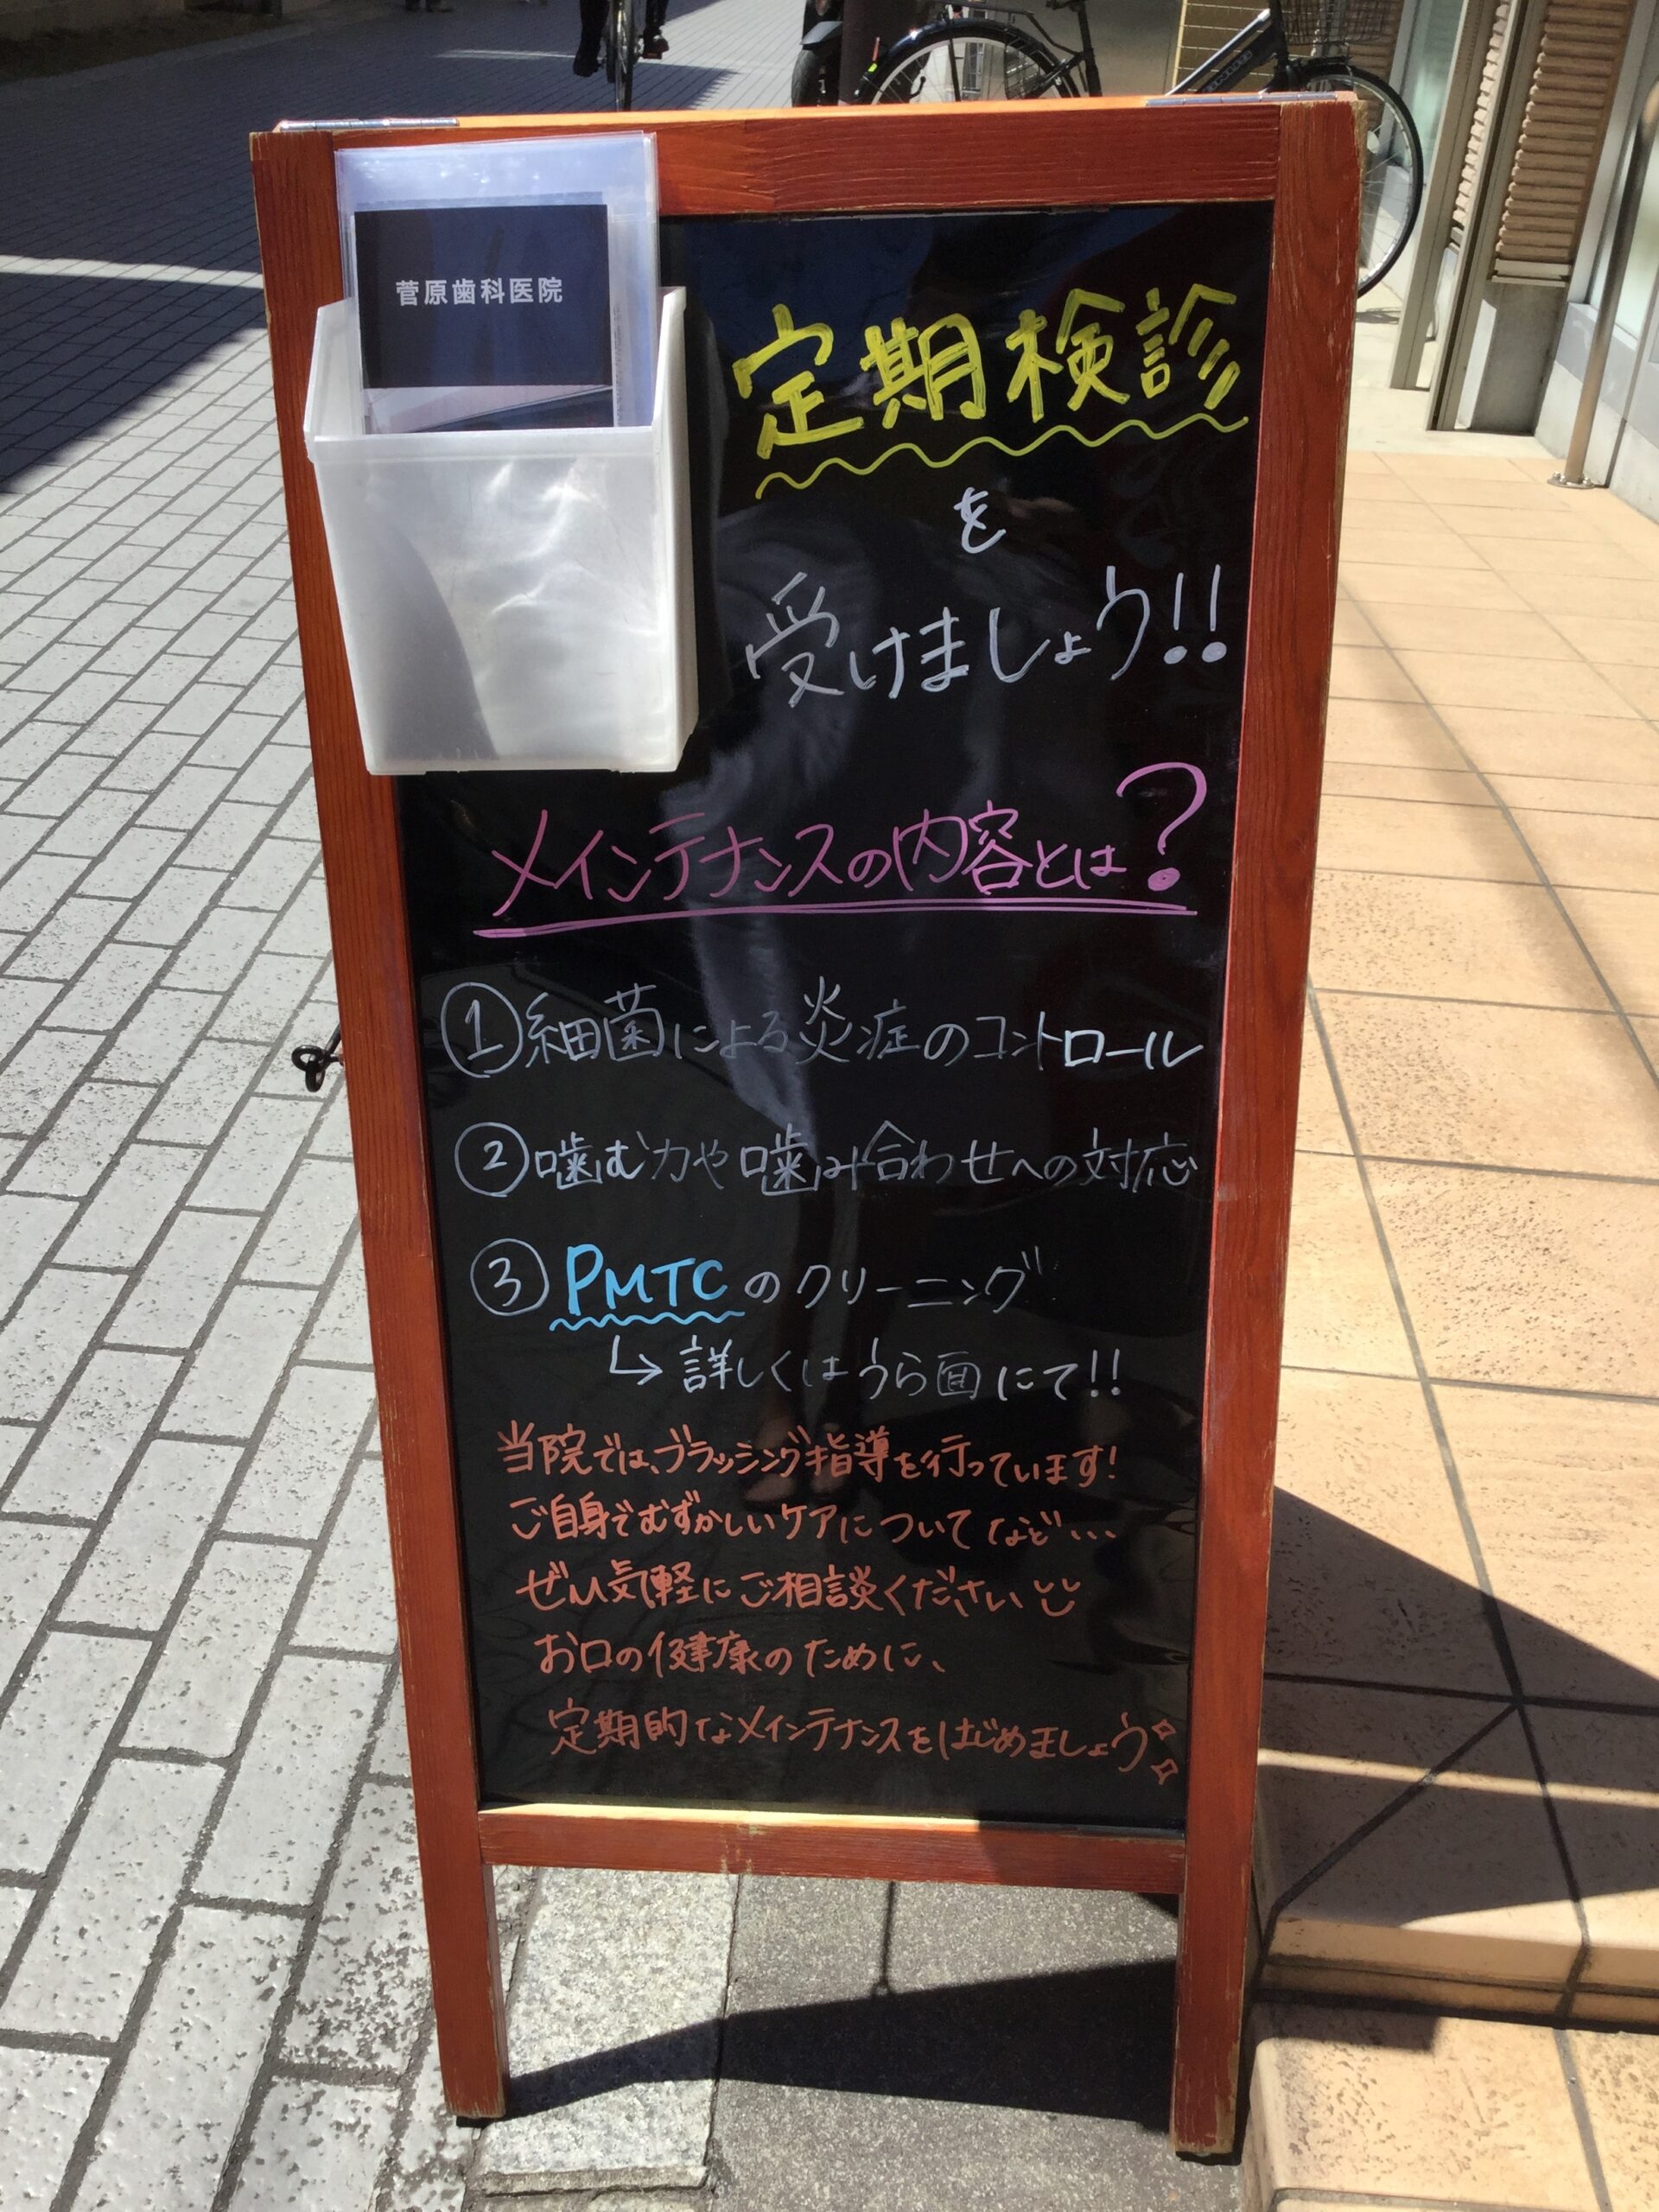 菅原歯科医院
定期検診
を
受けましょう!!
メインテナンスの内容とは?
①細菌による炎症のコントロール
②噛む力や噛み合わせへの対応
③PMTCのクリーニング
↳詳しくはうら面にて!!
当院では、ブラッシング指導を行っています!
ご自身でむずかしいケアについてなど...
ぜひ気軽にご相談ください
お口の健康のために、
定期的なメインテナンスをはじめましょう